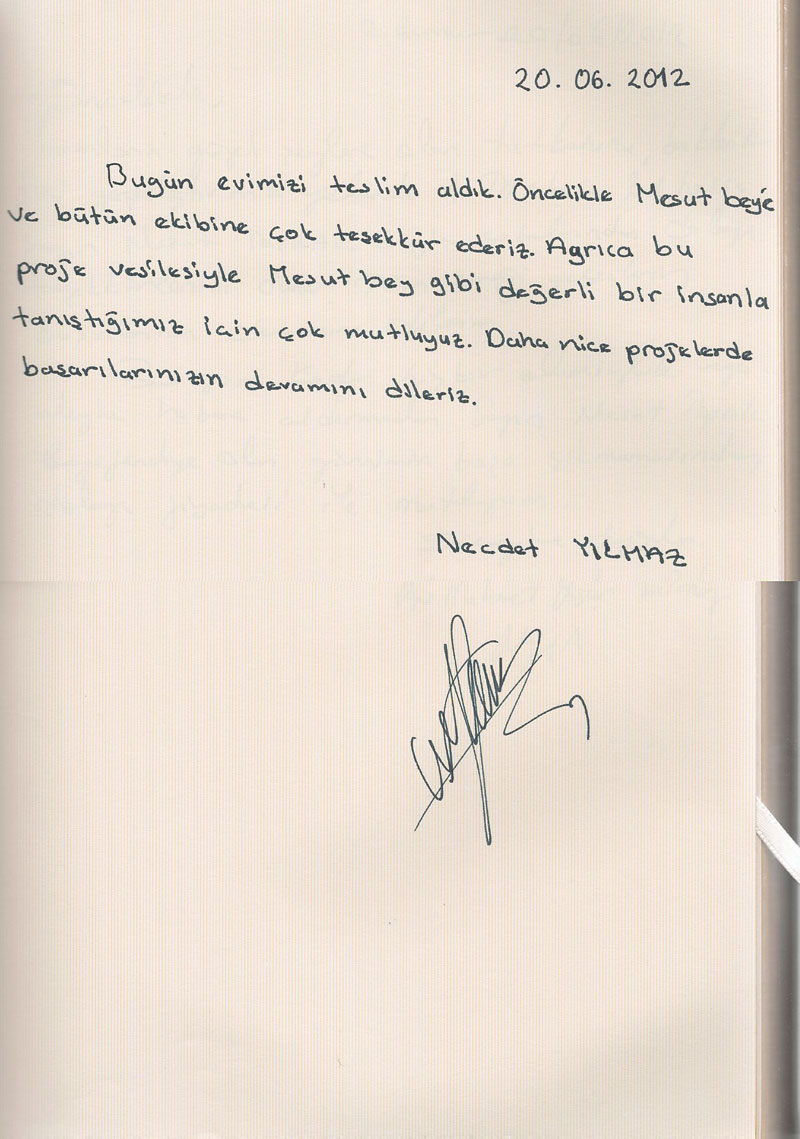 20. 06. 2012
Bugün evimizi teslim aldık. Öncelikle Mesut bey'e
ve bütün ekibine çok teşekkür ederiz. Ayrıca bu
proje vesilesiyle Mesut bey gibi değerli bir insanla
tanıştığımız için çok mutluyuz. Daha nice projelerde
başarılarınızın devamını dileriz.
Necdet YILMAZ